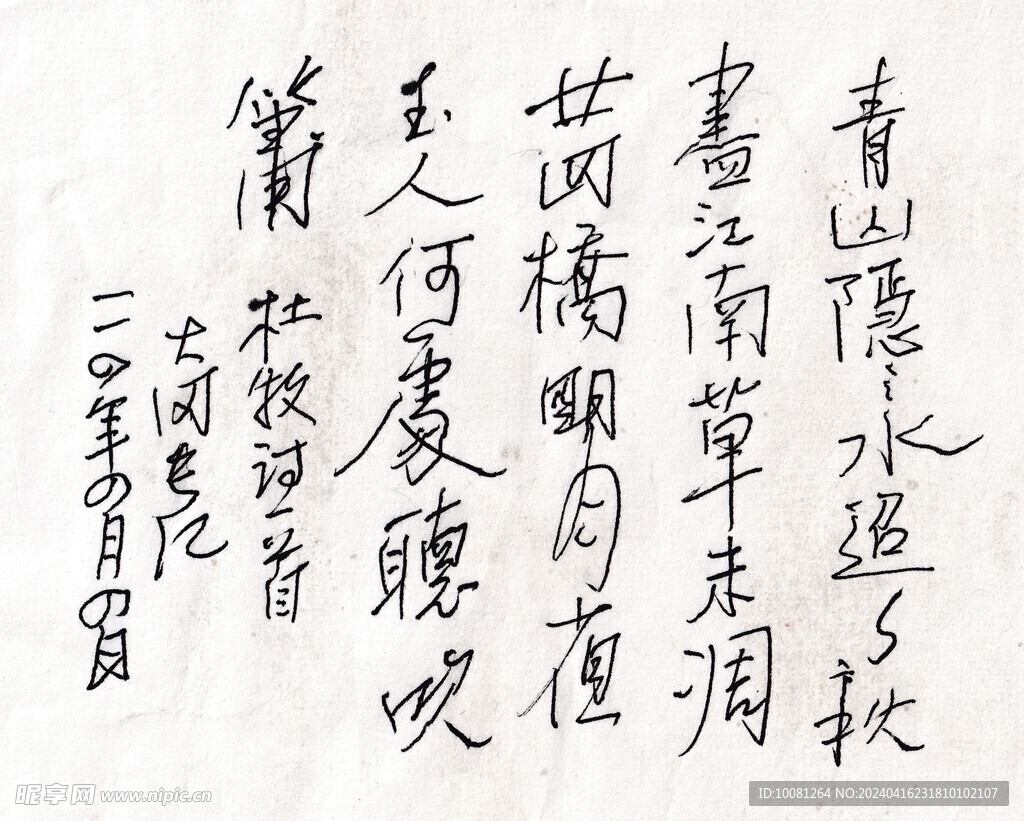 青山隱々水迢々秋
盡江南草未凋
廿四橋明月夜
玉人何處聽吹
簫 杜牧诗一首
大
年 月 日
昵享网 www.nipic.cn
ID:10081264 NO:20240416231810102107